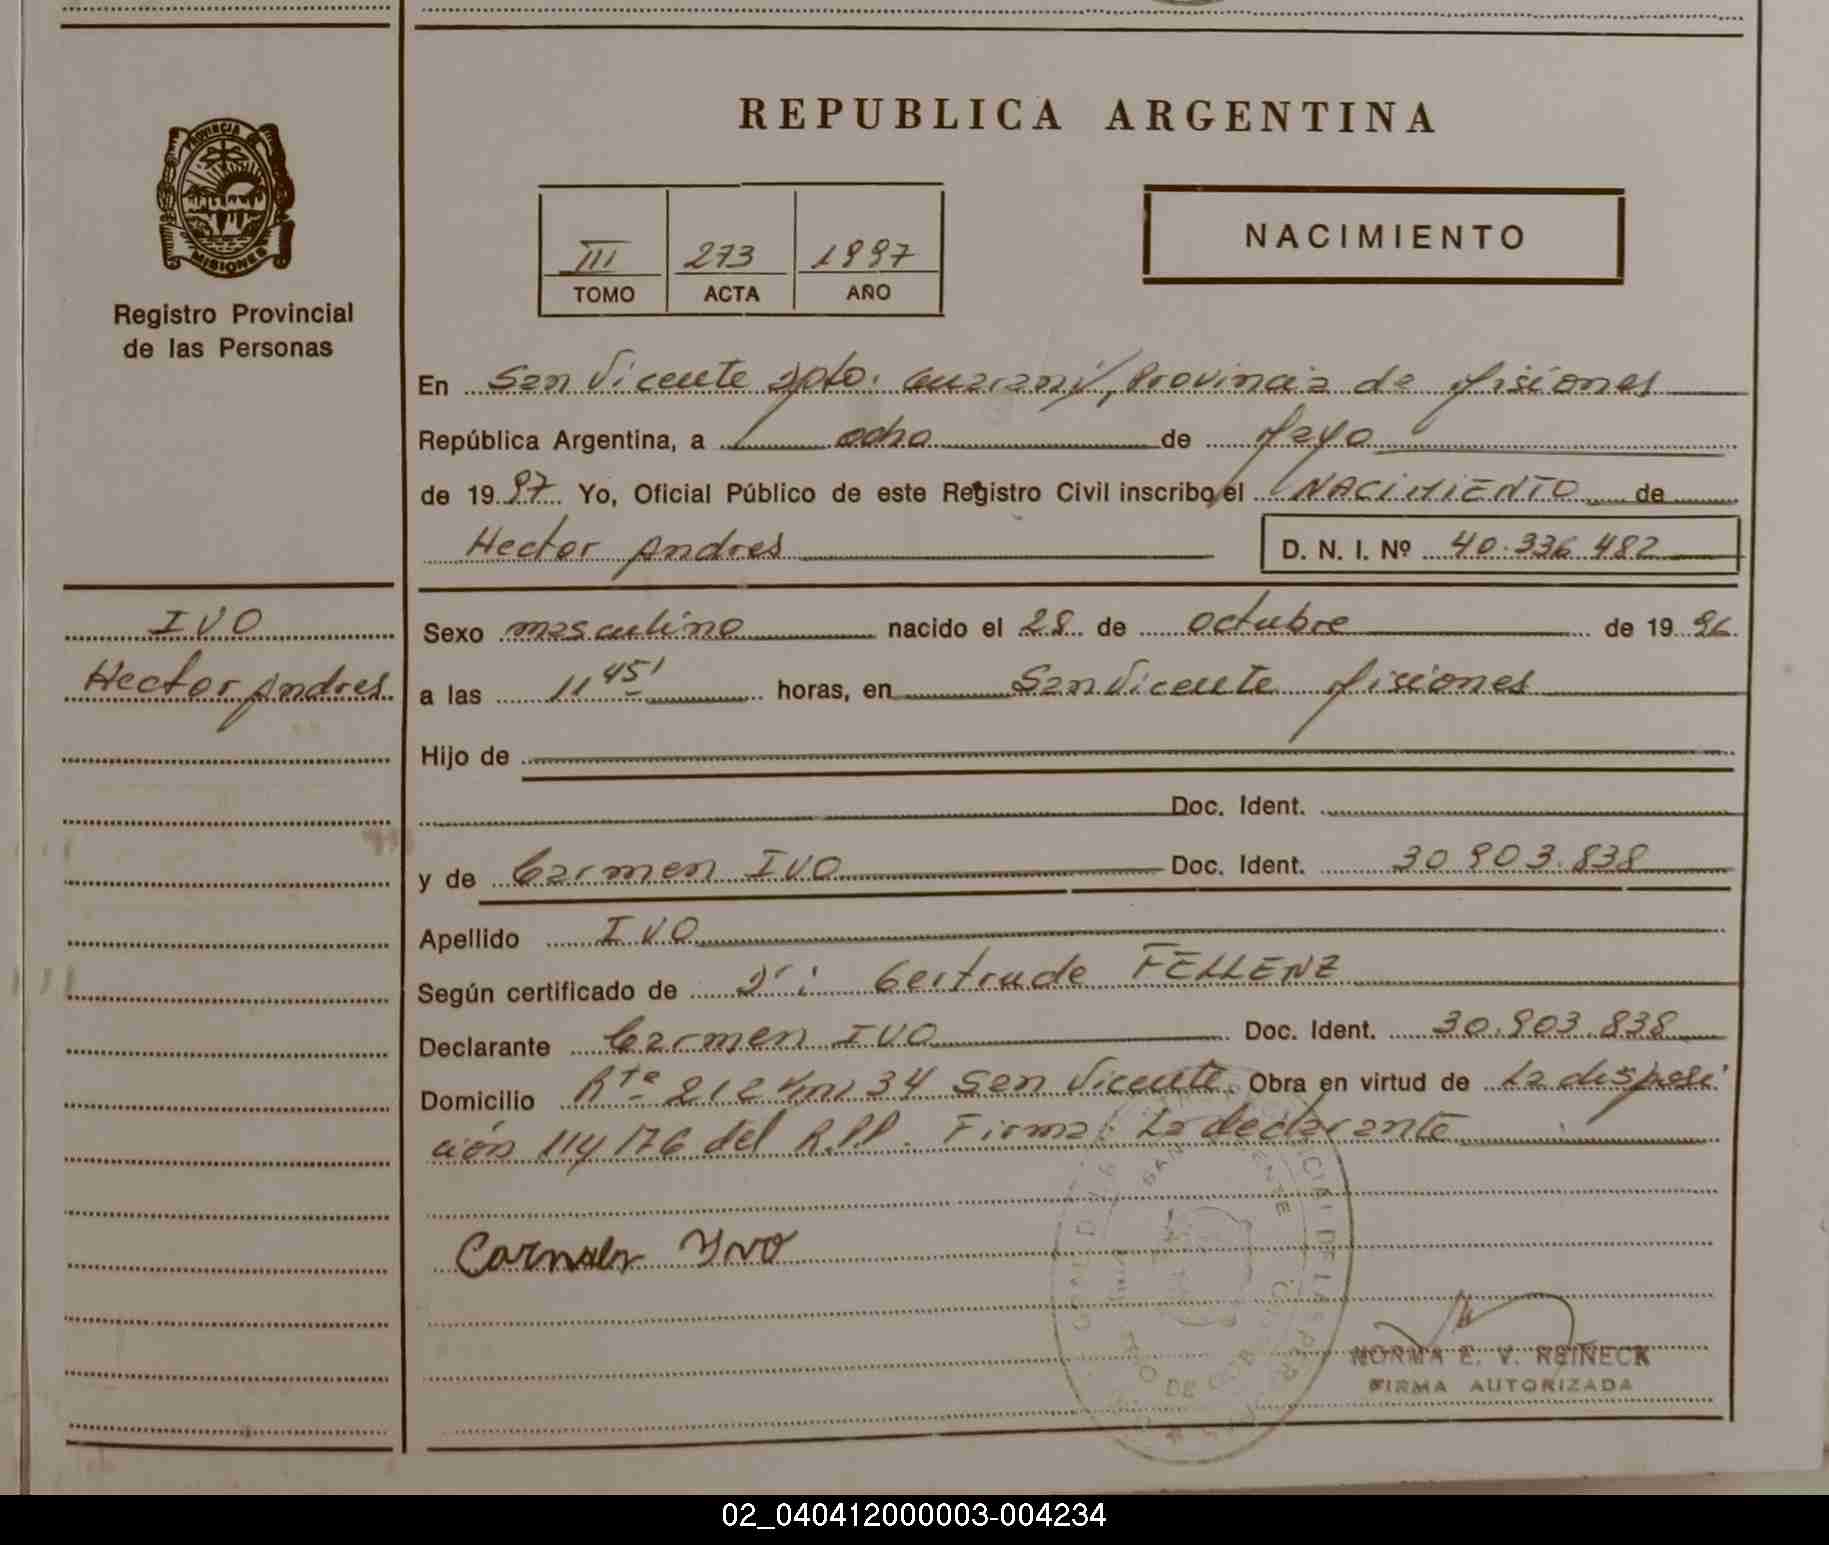 PROVINCIA DE
MISIONES
Registro Provincial
de las Personas
IVO
Hector Andres
REPUBLICA ARGENTINA
III 273 1997
TOMO ACTA AÑO
NACIMIENTO
En San Vicente Dpto. Guaraní, Provincia de Misiones
República Argentina, a ocho de Mayo
de 1997 Yo, Oficial Público de este Registro Civil inscribo el NACIMIENTO de
Hector Andres D. N. I. Nº 40.336.482
Sexo masculino nacido el 28 de octubre de 1996
a las 11 45' horas, en San Vicente Misiones
Hijo de
Doc. Ident.
y de Carmen IVO Doc. Ident. 30.903.838
Apellido IVO
Según certificado de Gertrude FELLENZ
Declarante Carmen IVO Doc. Ident. 30.903.838
Domicilio Rta 212 km 34 San Vicente. Obra en virtud de La disposi
ción 114/76 del R.P.P. Firma: La declarante
Ivo
NORMA E. V. REINECK
FIRMA AUTORIZADA
02_040412000003-004234